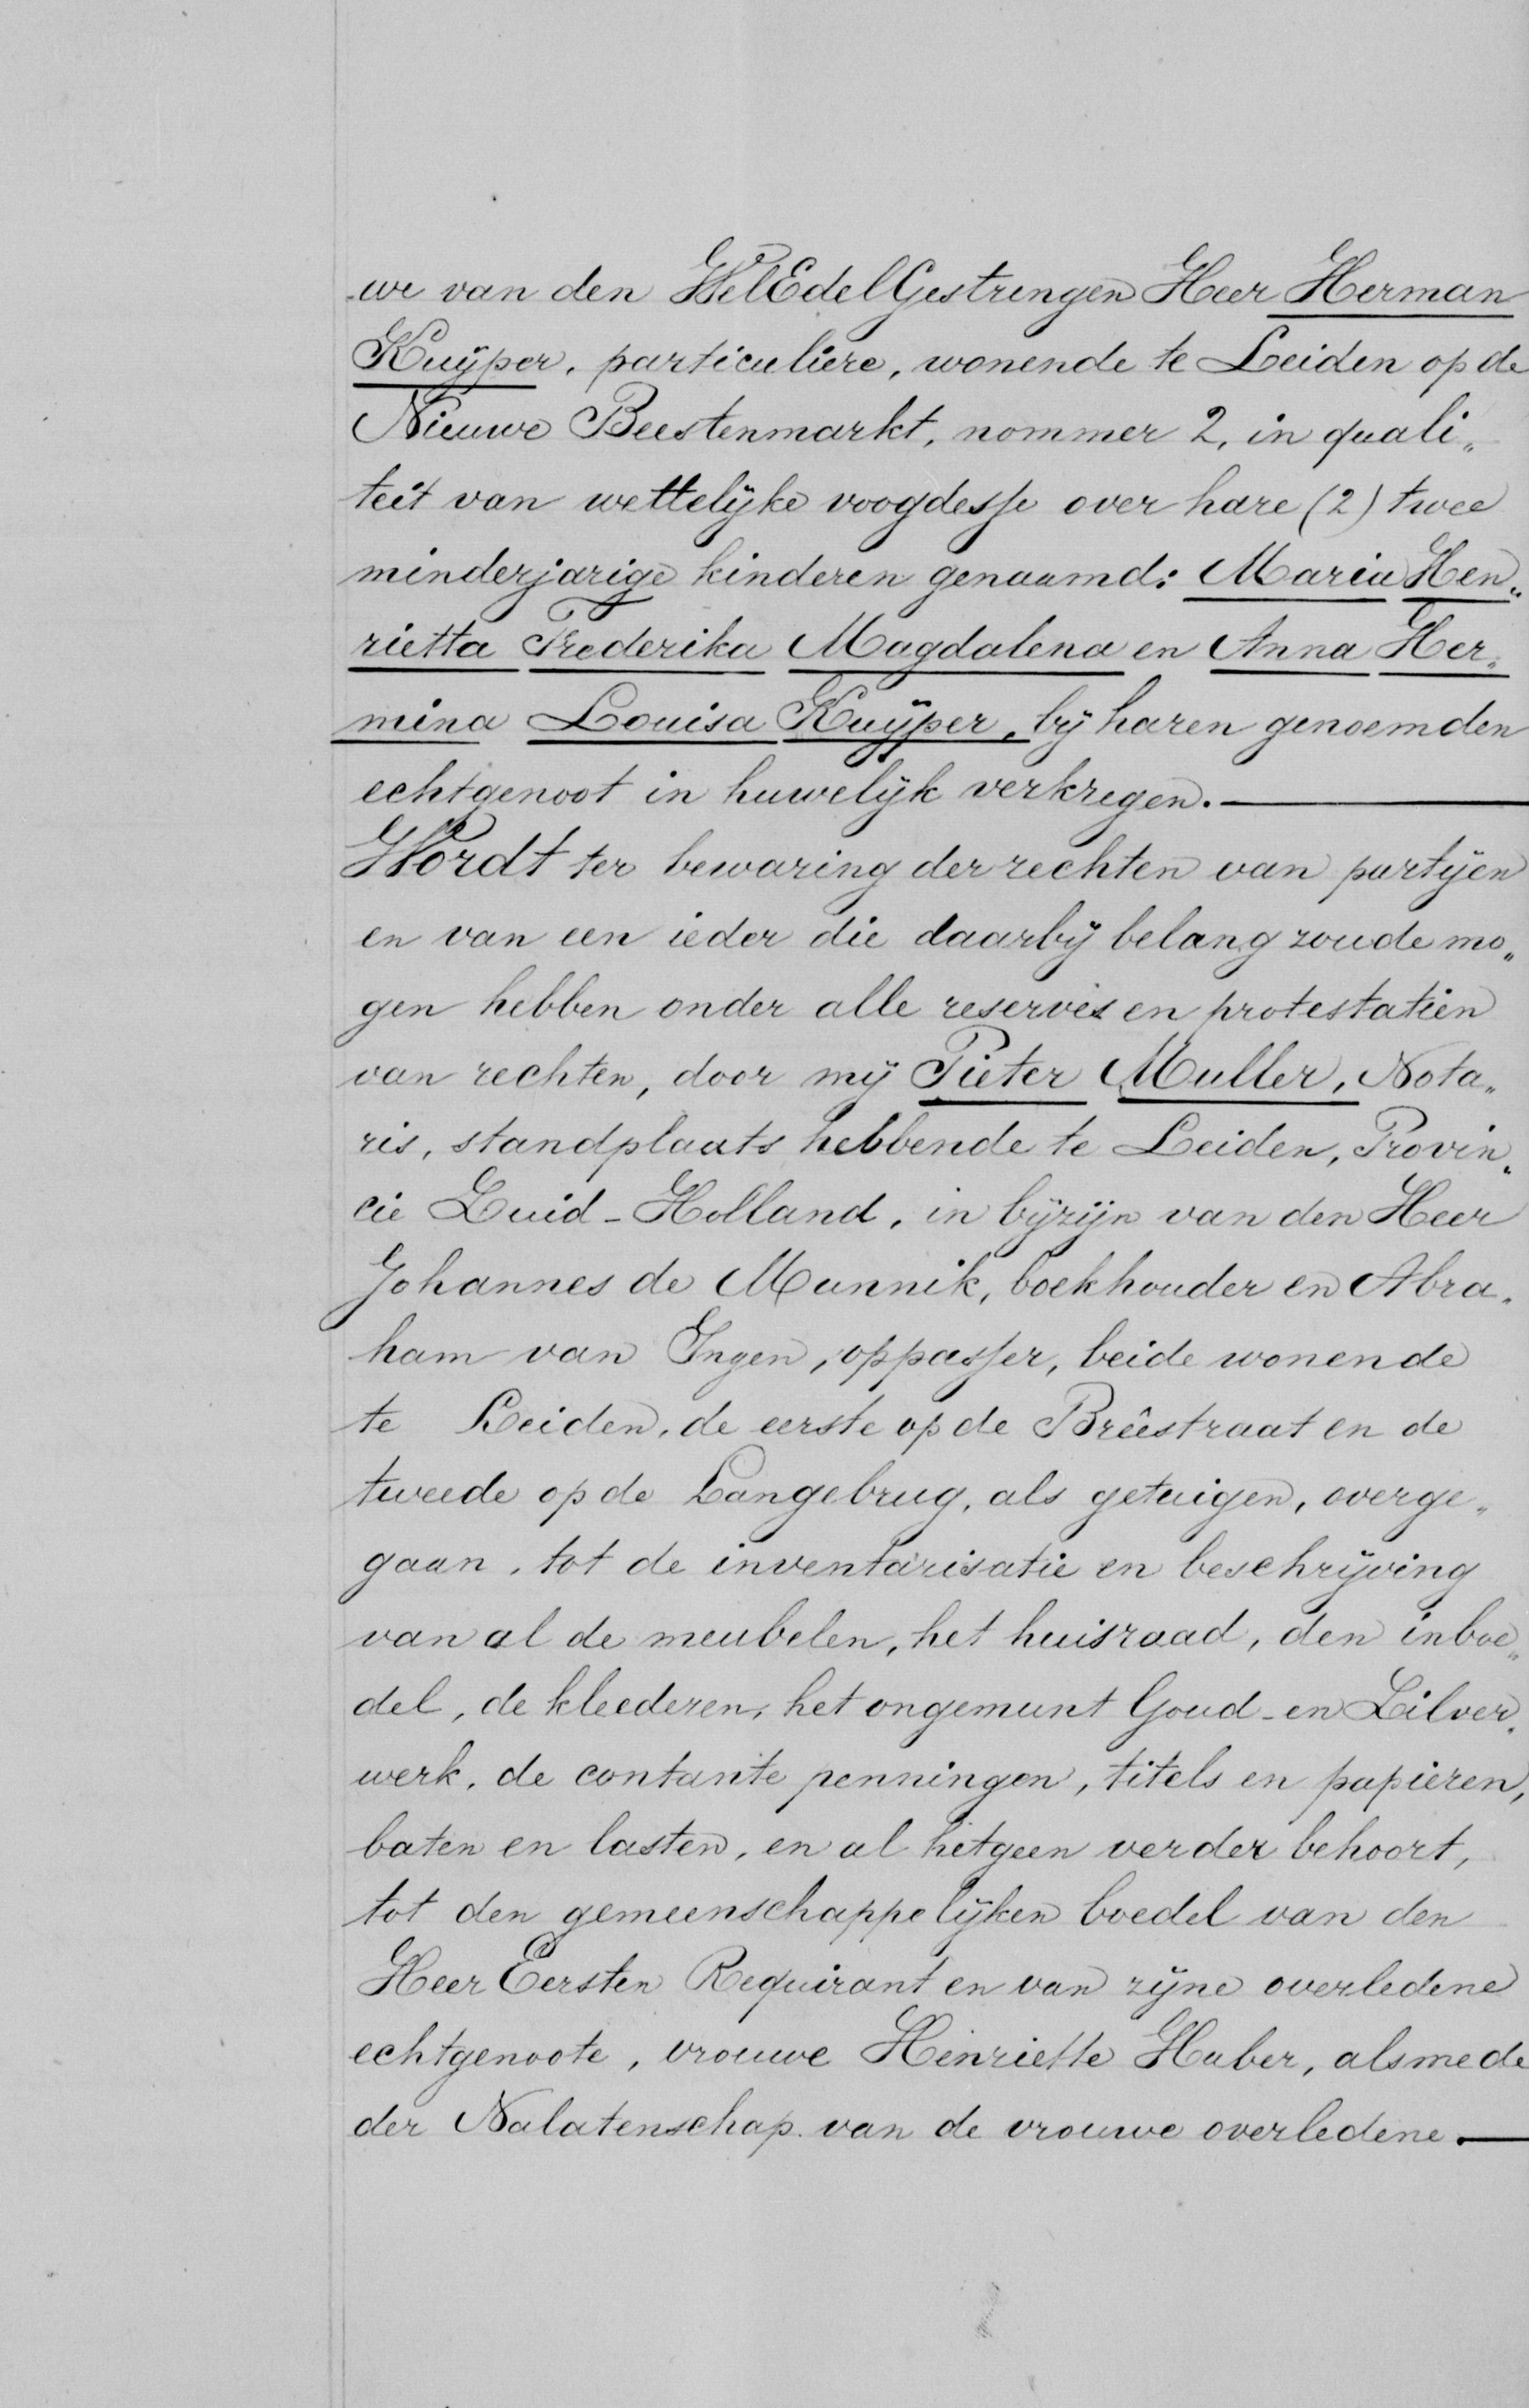 we van den WelEdelGestrengen Heer Herman
Kuÿper, particuliere, wonende te Leiden op de
Nieuwe Beestenmarkt, nommer 2, in quali„
teit van wettelijke voogdesse over hare (2) twee
minderjarige kinderen genaamd: Maria Hen„
rietta Frederika Magdalena en Anna Her„
mina Louisa Kuÿper, bij haren genoemden
echtgenoot in huwelijk verkregen.—
Wordt ter bewaring der rechten van partijen
en van een ieder die daarbij belang zoude mo„
gen hebben onder alle reserves en protestatiën
van rechten, door mij Pieter Muller, Nota„
ris, standplaats hebbende te Leiden, Provin„
cie Zuid-Holland, in bijzijn van den Heer
Johannes de Munnik, boekhouder en Abra„
ham van Ingen, oppasser, beide wonende
te Leiden, de eerste op de Breêstraat en de
tweede op de Langebrug, als getuigen, overge„
gaan, tot de inventarisatie en beschrijving
van al de meubelen, het huisraad, den inboe„
del, de kleederen, het ongemunt Goud-en Zilver„
werk, de contante penningen, titels en papieren,
baten en lasten, en al hetgeen verder behoort,
tot den gemeenschappelijken boedel van den
Heer Eersten Requirant en van zijne overledene
echtgenoote, vrouwe Henriette Huber, alsmede
der Nalatenschap van de vrouwe overledene.—